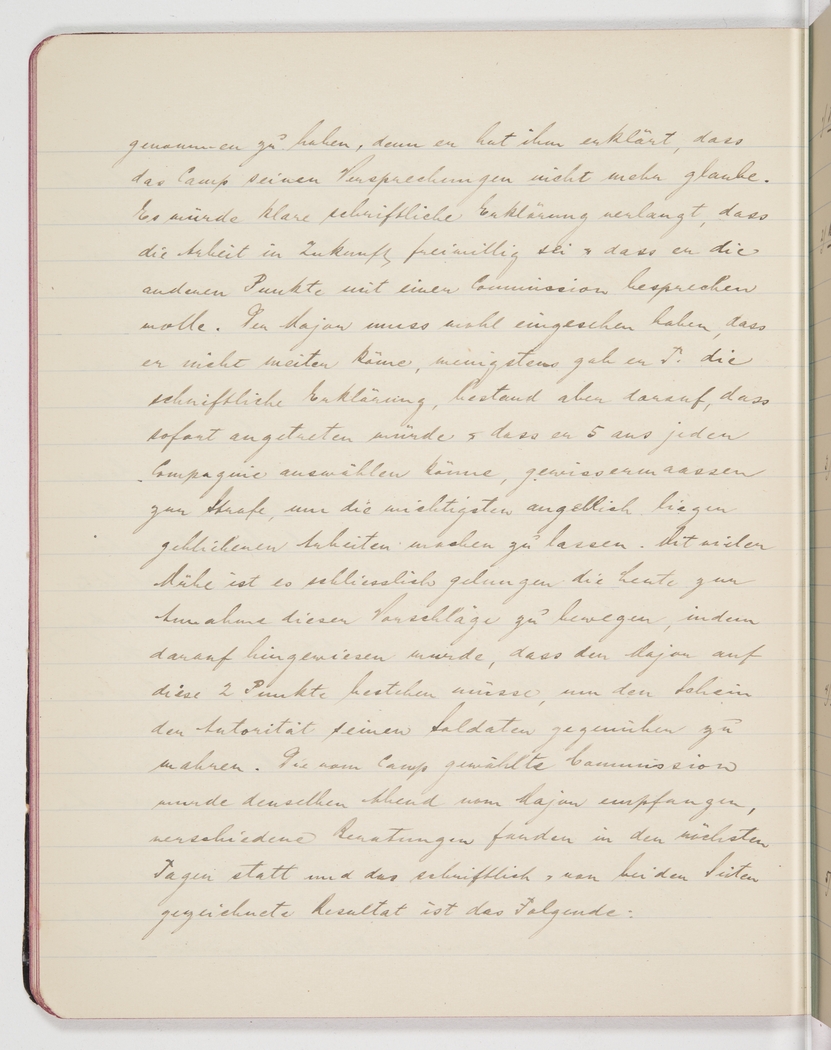 genommen zu haben, denn er hat ihm erklärt, dass
das Camp seinen Versprechungen nicht mehr glaube.
Es würde klare schriftliche Erklärung verlangt, dass
die Arbeit in Zukunft, freiwillig sei & dass er die
anderen Punkte mit einer Commission besprechen
wolle. Der Major muss wohl eingesehen haben, dass
er nicht weiter käme, wenigstens gab er P. die
schriftliche Erklärung, bestand aber darauf, dass
sofort angetreten würde & dass er 5 aus jeder
Compagnie auswählen könne, gewissermaassen
zur Strafe, um die wichtigsten angeblich liegen
gebliebenen Arbeiten machen zu lassen. Mit vieler
Mühe ist es schliesslich gelungen die Leute zur
Annahme dieser Vorschläge zu bewegen, indem
darauf hingewiesen wurde, dass der Major auf
diese 2 Punkte bestehen müsse, um den Schein
der Autorität seinen Soldaten gegenüber zu
wahren. Die vom Camp gewählte Commission
wurde denselben Abend vom Major empfangen,
verschiedene Beratungen fanden in den nächsten
Tagen statt und das schriftlich, von beiden Seiten
gezeichnete Resultat ist das Folgende: